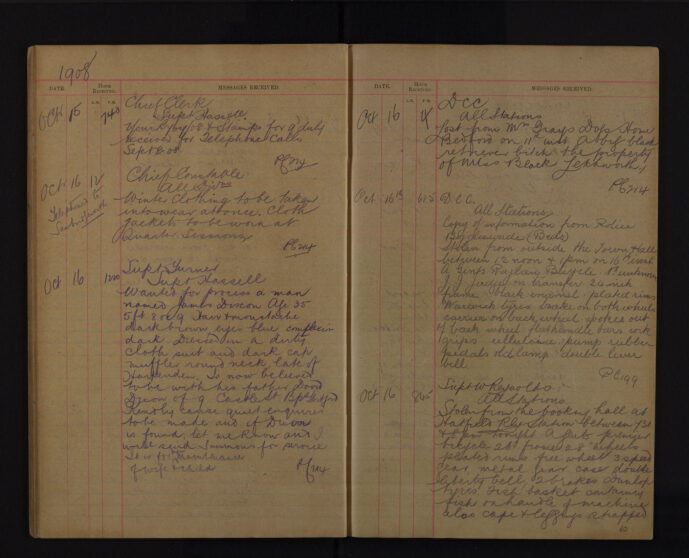 1908
DATE. HOUR RECEIVED. MESSAGES RECEIVED.
A.M. P.M.
Oct 15 740 Chief Clerk
Supt Hassell
Your of 8 Stamps for 9 duly
received for Telephone Calls
Sept 08
Chief Constable
Oct 16 12 All
Telephoned to
Winter Clothing to be taken
into wear at once. Cloth
jackets to be worn at
Quarter Sessions
PC 214
Oct 16 Supt Turner
Supt Hassell
Wanted for process a man
named James Dixon Age 35
5ft 8 or 9 Fair moustache
dark brown eyes blue complexion
dark Dressed in a dirty
cloth suit and dark cap
muffler round neck late of
Harpenden is now believed
to be with his father
Dixon of 9 Castle St
Kindly cause quiet enquiries
to be made and if Dixon
is found, let me know and I
will send Summons for service
of wife & child
DATE. HOUR RECEIVED. MESSAGES RECEIVED.
A.M. P.M.
Oct 16 4 DCC
All Stations
Lost from Mrs Grays Dogs Home
Bedford on 11th inst a black
retriever bitch the property
of Miss Black Letchworth
PC 214
Oct 16th 625 D.C.C.
All Stations
Copy of information from Police
Biggleswade (Beds)
Stolen from outside the Town Hall
between 12 noon & 1pm on 16th inst
a Gents Bicycle
on transfer 24 inch
frame black enamel plated rims
Warwick tyres brake on both wheels
carrier on back wheel spokes out
of back wheel handle bars cork
grips celluloid pump rubber
pedals old lamp double lever
bell
PC 199
Oct 16 845 Supt W Reynolds
All Stations
Stolen from the booking hall at
Hatfield Rly Station between 730
& 8pm tonight a
bicycle 24 frame 28 wheels
plated rims free wheel 3 speed
gear metal gear case double
bell, 2 brakes Dunlop
tyres basket containing
fish on handle of machine
also cape & leggings strapped